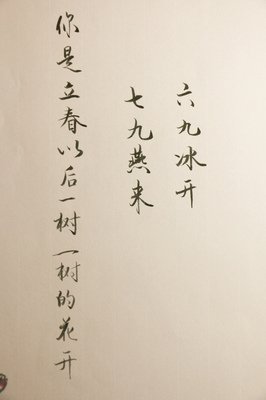 六九冰开
七九燕来
你是立春以后一树一树的花开